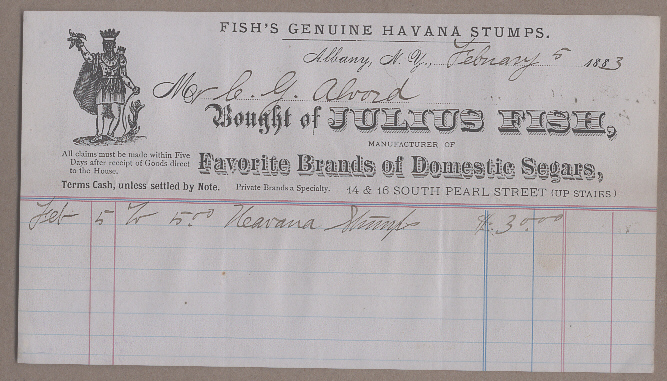 FISH'S GENUINE HAVANA STUMPS.
Albany, N. Y., February 5 1883
Mr C. G. Alvord
Bought of JULIUS FISH,
MANUFACTURER OF
Favorite Brands of Domestic Segars,
All claims must be made within Five
Days after receipt of Goods direct
to the House.
Terms Cash, unless settled by Note. Private Brands a Specialty. 14 & 16 SOUTH PEARL STREET (UP STAIRS)
Feb 5 To 500 Havana Stumps $ 30.00